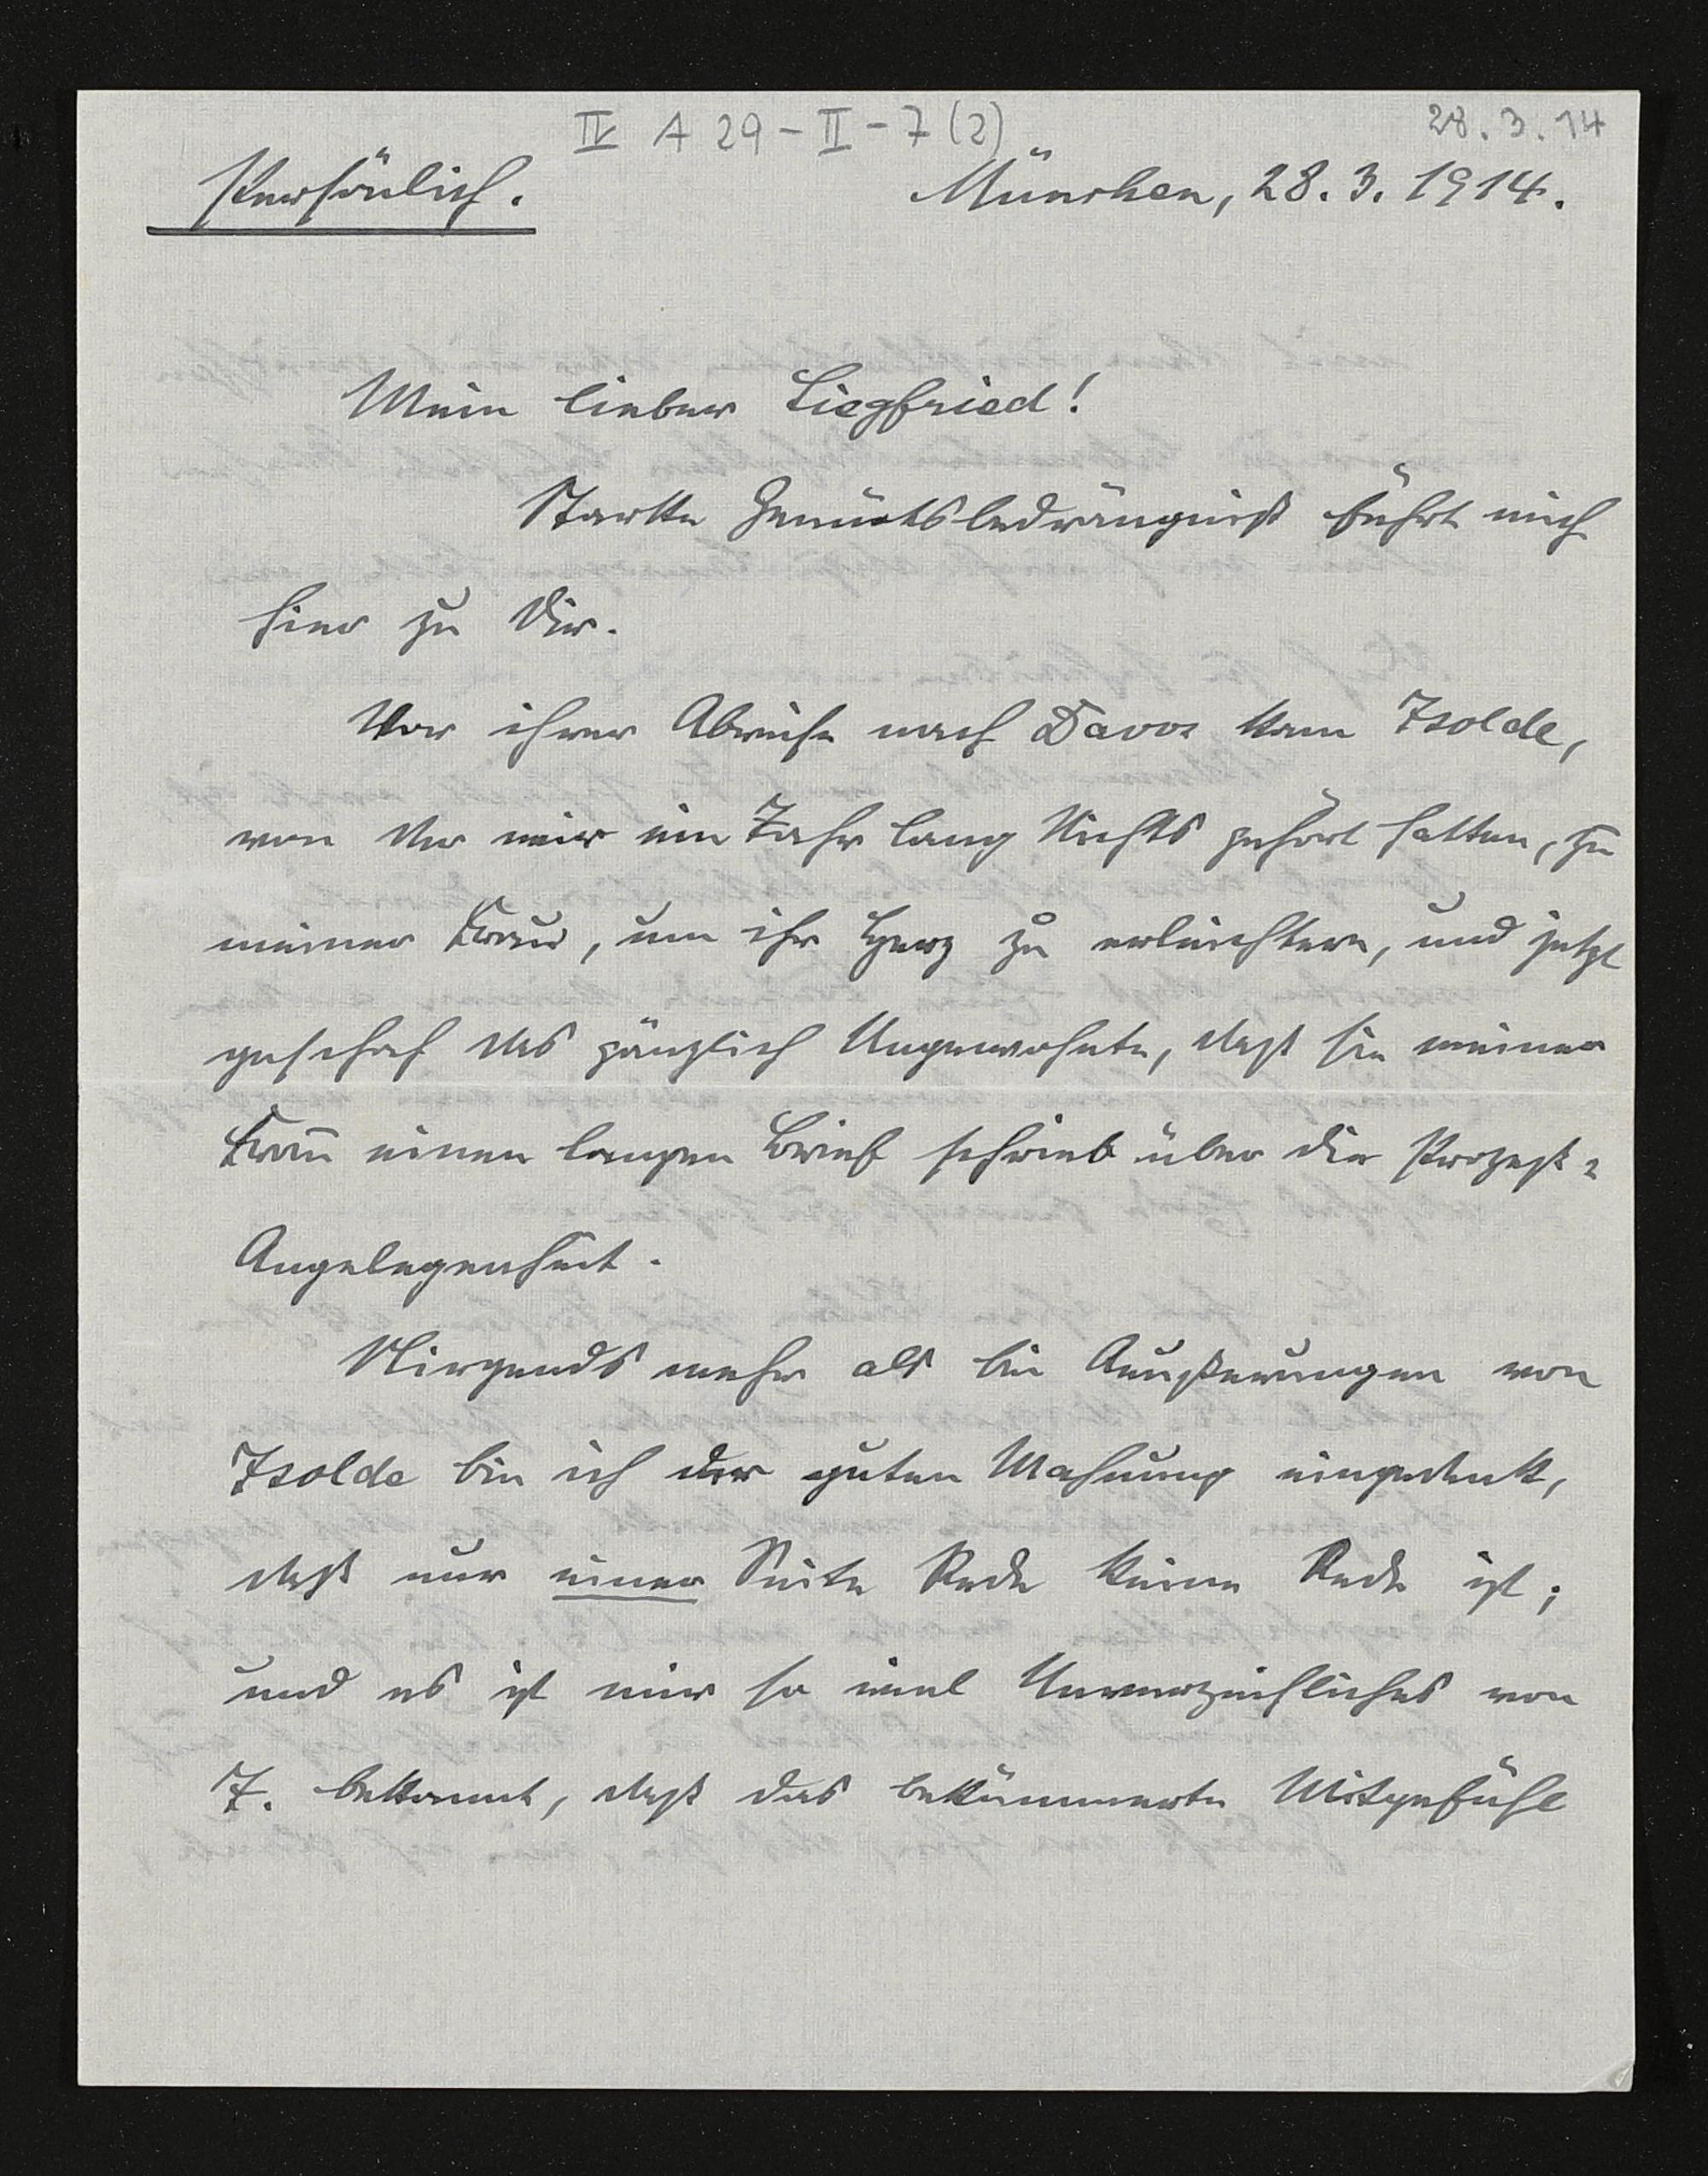 IV A 29 – II – 7 (2)
28.3.14
Persönlich.
München, 28.3.1914.
Mein lieber Siegfried!
Starke Gemütsbedrängniß führt mich
hier zu Dir.
Vor ihrer Abreise nach Davos kam Isolde,
von der wir ein Jahr lang Nichts gehört hatten, zu
meiner Frau, um ihr Herz zu erleichtern, und jetzt
geschah das gänzlich Ungewohnte, daß sie meiner
Frau einen langen Brief schrieb über die Prozeß-
Angelegenheit.
Nirgends mehr als bei Äußerungen von
Isolde bin ich der guten Mahnung eingedenk,
daß nur einer Seite Rede keine Rede ist;
und es ist mir so viel Unverzeihliches von
I. bekannt, daß das bekümmerte Mitgefühl